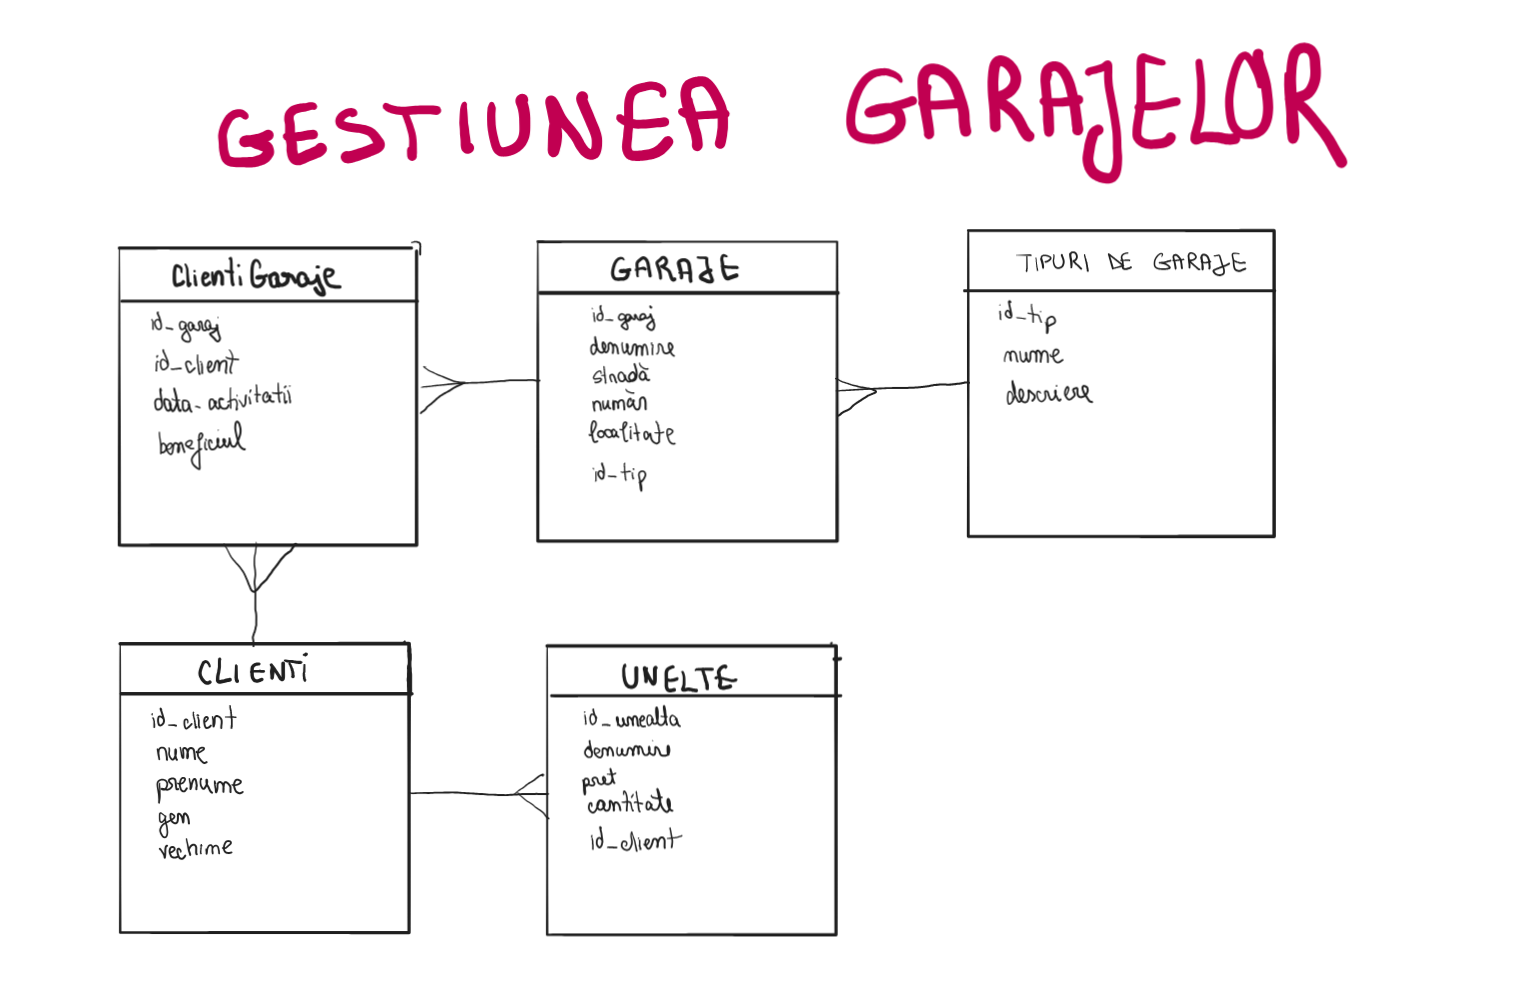 GESTIUNEA GARAJELOR
Clienti Garaje
id_garaj
id_client
data_activitatii
beneficiul
GARAJE
id_garaj
denumire
stradă
număr
localitate
id_tip
TIPURI DE GARAJE
id_tip
nume
descriere
CLIENTI
id_client
nume
prenume
gen
vechime
UNELTE
id_unealta
denumire
pret
cantitate
id_client